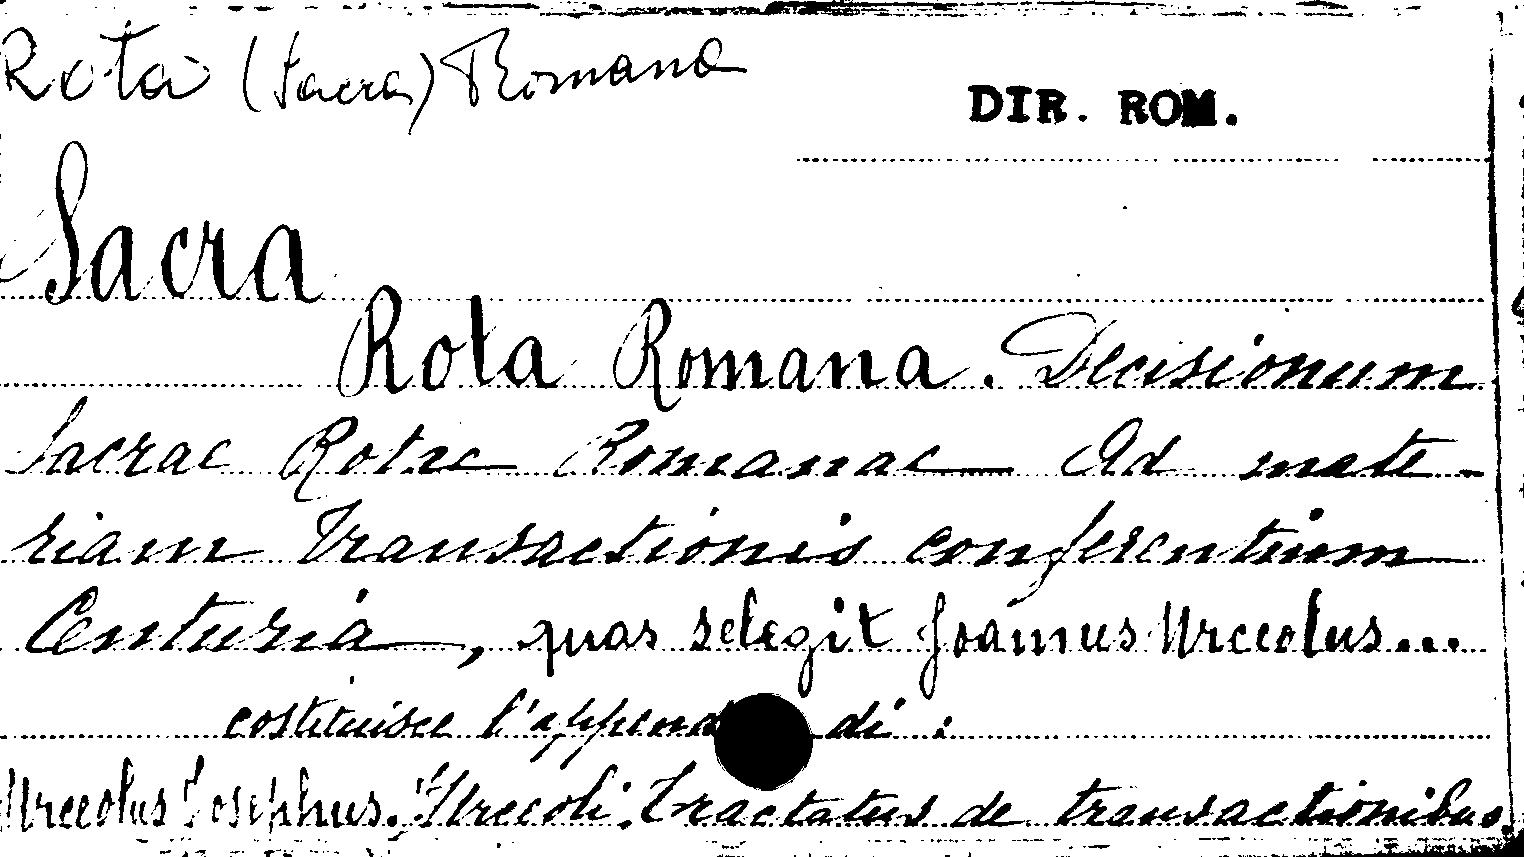 Rota (Sacra) Romana
DIR. ROM.
Sacra
Rota Romana. Decisionum
Sacrae Rotae Romanae Ad mate-
riam Transactionis conferentium
Centuria, quas selegit Joannus Urceolus...
costituisce l'append di:
Urceolus Josephus. Urceoli. Tractatus de transactionibus.